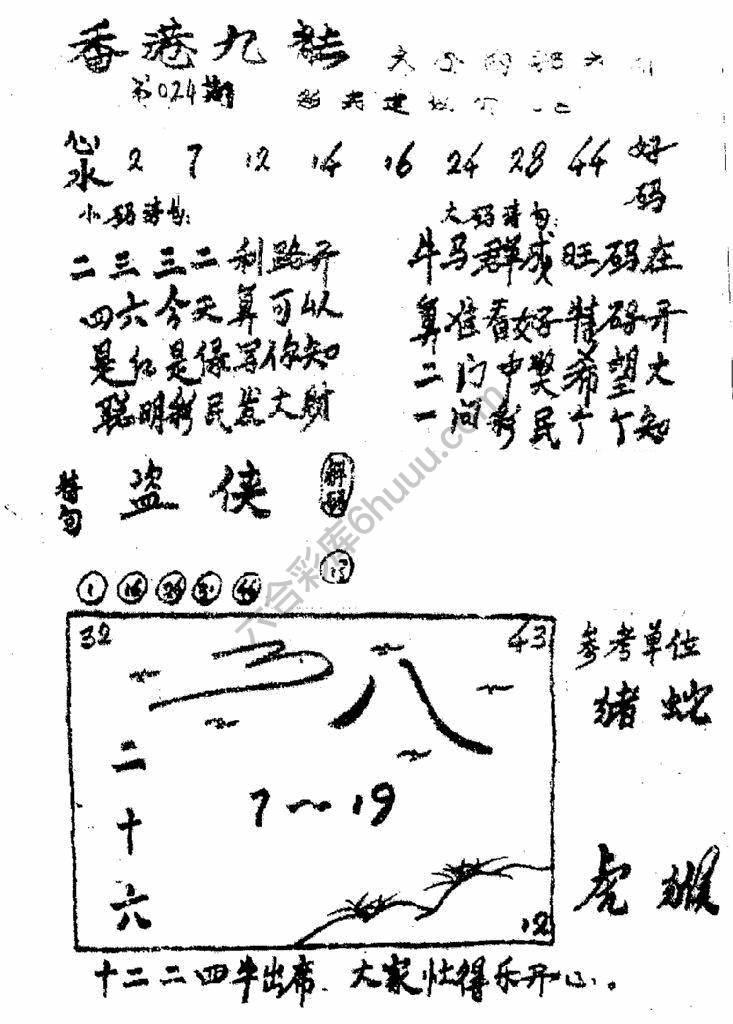 香港九龍
第024期
心水 2 7 12 14 16 24 28 44 好码
小码诗句:
二三三二利路开
四六今天算可以
是红是绿写你知
聪明彩民发大财
大码诗句:
牛马群成旺码在
算准看好特码开
二门中奖希望大
一问彩民个个知
特句
盗侠
解码
1
32
43
三八
二十六
7～19
12
参考单位
猪蛇
虎猴
十二二四牛出席.大家壮得乐开心。
六合彩库6huuu.com